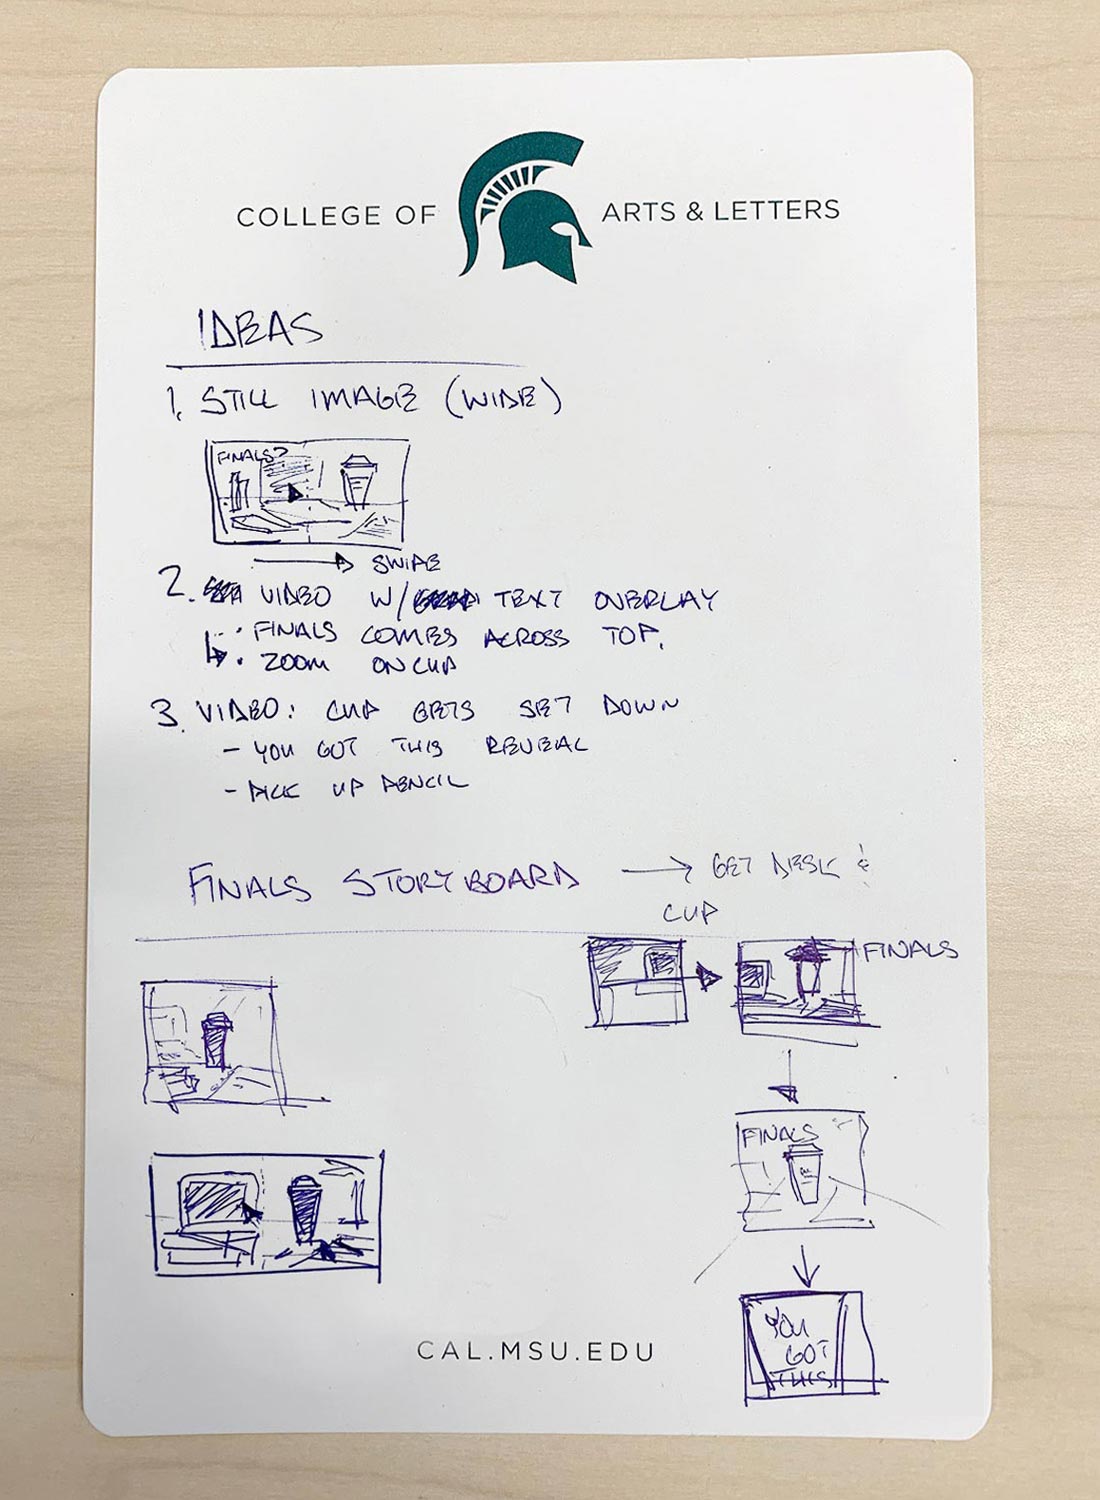 COLLEGE OF ARTS & LETTERS
IDEAS
1. STILL IMAGE (WIDE)
FINALS?
SWIPE
2. VIDEO W/ TEXT OVERLAY
· FINALS COMES ACROSS TOP.
· ZOOM ON CUP
3. VIDEO: CUP GETS SET DOWN
- YOU GOT THIS REVEAL
- PICK UP PENCIL
FINALS STORYBOARD → GET DESK &
CUP
FINALS
FINALS
YOU
GOT
THIS
CAL.MSU.EDU